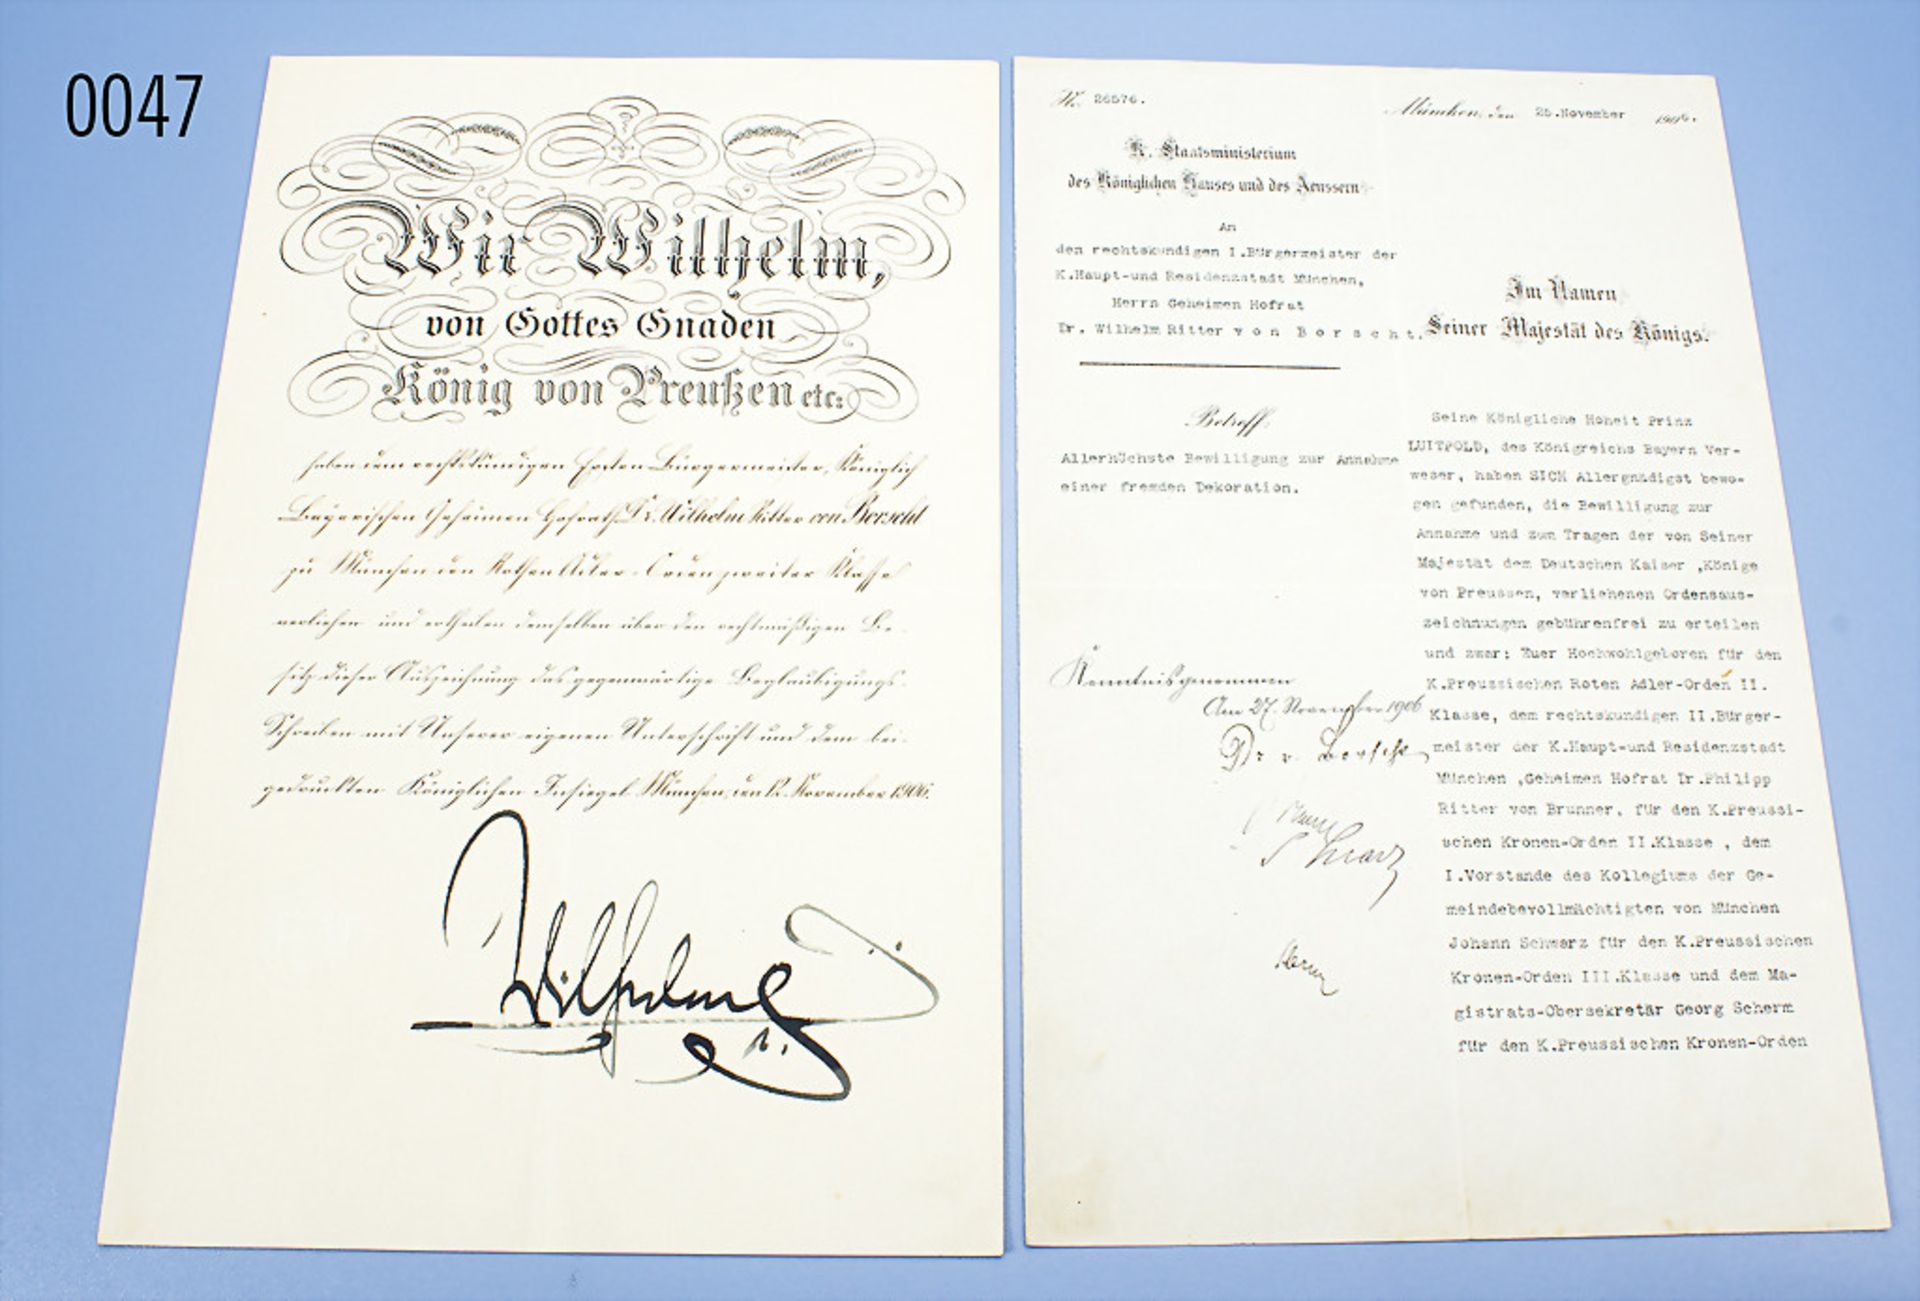 0047
Wir Wilhelm,
von Gottes Gnaden
König von Preußen etc:
haben dem rechtskundigen Ersten Bürgermeister, Königlich
Bayerischen Geheimen Hofrath Dr. Wilhelm Ritter von Borscht
zu München den Rothen Adler-Orden zweiter Klasse
verliehen und ertheilen demselben über den rechtmäßigen Be-
sitz dieser Auszeichnung das gegenwärtige Beglaubigungs-
Schreiben mit Unserer eigenen Unterschrift und dem bei-
gedruckten Königlichen Insiegel. München, den 12. November 1906.
Wilhelm
Nr. 26576.
München, den 25.November 1906.
K. Staatsministerium
des Königlichen Hauses und des Aeussern
An
den rechtskundigen I.Bürgermeister der
K.Haupt-und Residenzstadt München,
Herrn Geheimen Hofrat
Dr. Wilhelm Ritter von Borscht.
Betreff:
Allerhöchste Bewilligung zur Annahme
einer fremden Dekoration.
Kenntnis genommen
Am 27. November 1906
Dr v. Borscht
Im Namen
Seiner Majestät des Königs.
Seine Königliche Hoheit Prinz
LUITPOLD, des Königreichs Bayern Ver-
weser, haben SICH Allergnädigst bewo-
gen gefunden, die Bewilligung zur
Annahme und zum Tragen der von Seiner
Majestät dem Deutschen Kaiser ,Könige
von Preussen, verliehenen Ordensaus-
zeichnungen gebührenfrei zu erteilen
und zwar: Euer Hochwohlgeboren für den
K.Preussischen Roten Adler-Orden II.
Klasse, dem rechtskundigen II.Bürger-
meister der K.Haupt-und Residenzstadt
München ,Geheimen Hofrat Dr.Philipp
Ritter von Brunner, für den K.Preussi-
schen Kronen-Orden II.Klasse , dem
I.Vorstande des Kollegiums der Ge-
meindebevollmächtigten von München
Johann Schwarz für den K.Preussischen
Kronen-Orden III.Klasse und dem Ma-
gistrats-Obersekretär Georg Scherm
für den K.Preussischen Kronen-Orden